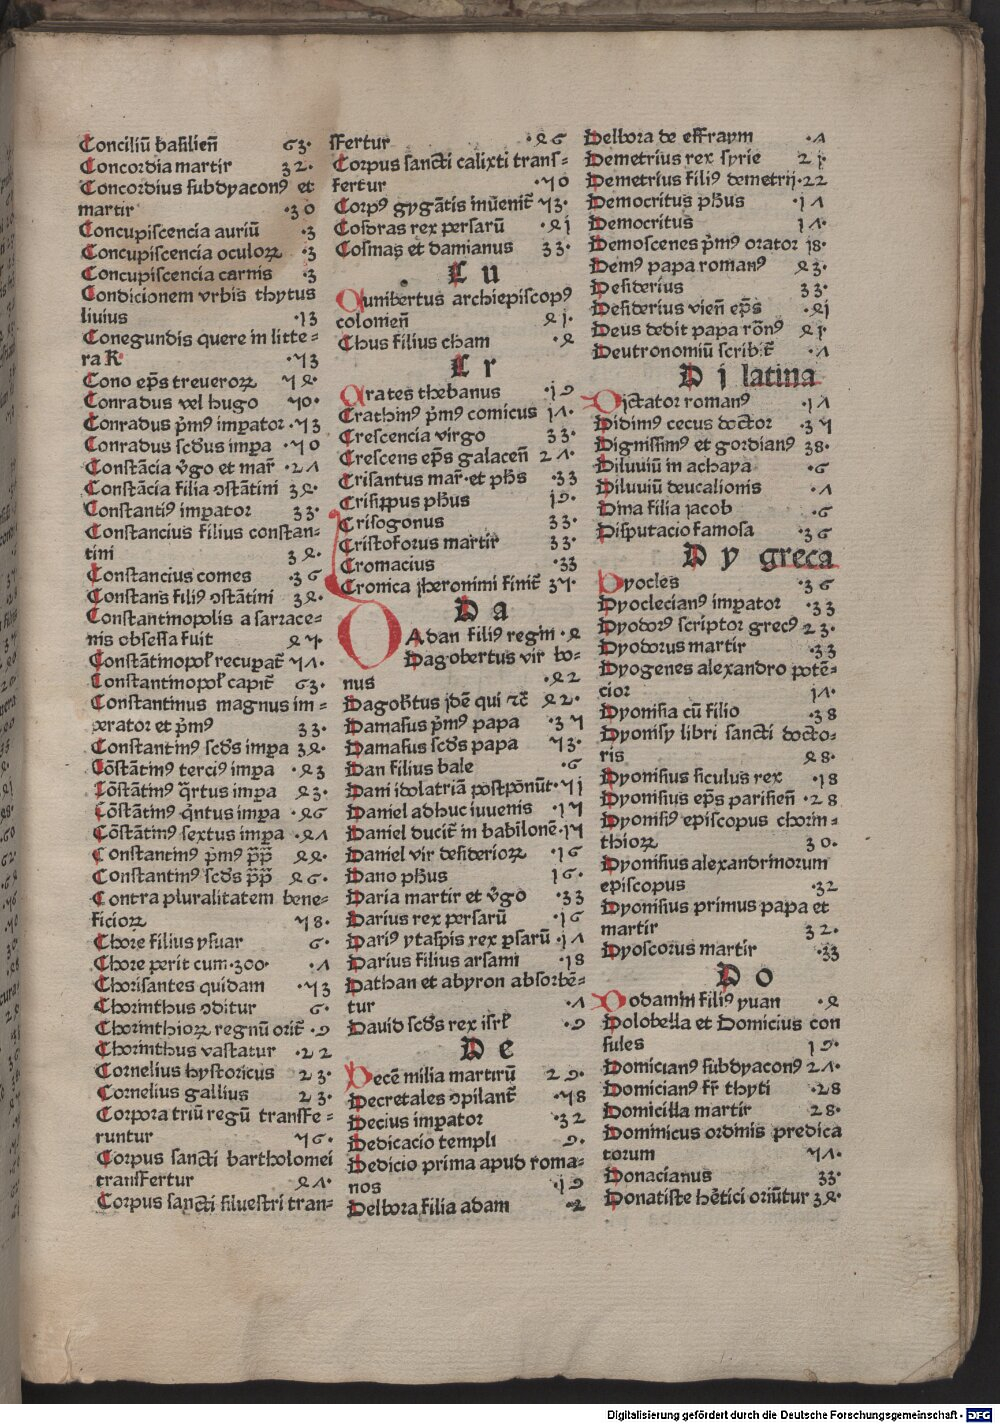 Conciliū basilieñ 63·
Concordia martir 32·
Concordius subdyacon⁹ et
martir ·30
Concupiscencia auriū ·3
Concupiscencia oculoꝝ ·3
Concupiscencia carnis ·3
Condicionem vrbis thytus
liuius ·13
Conegundis quere in litte-
ra K ·73
Cono ep̄s treueroꝝ 74·
Conradus vel hugo 70·
Conradus p̄m⁹ imꝑator ·73
Conradus sc̄dus imꝑa ·70
Constācia v̄go et mar̄ ·21
Constācia filia ↄstātini 34·
Constanti⁹ imꝑator 33·
Constancius filius constan-
tini 34·
Constancius comes ·36
Constans fili⁹ ↄstātini 34·
Constantinopolis a sarrace-
nis obsessa fuit 47·
Constātinopoł recupat̄ 71·
Constantinopoł capit̄ 63·
Constantinus magnus im-
perator et p̄m⁹ 33·
Constantin⁹ sc̄ds imꝑa 34·
Cōstātin⁹ terci⁹ imꝑa ·43
Cōstātin⁹ q̄rtus imꝑa 43·
Cōstātin⁹ q̄ntus imꝑa ·46
Cōstātin⁹ sextus imꝑa ·41
Constantin⁹ p̄m⁹ p̄p̄ 44·
Constantin⁹ sc̄ds p̄p̄ 46·
Contra pluralitatem bene-
ficioꝝ 78·
Chore filius ysuar 6·
Chore perit cum·300· ·1
Chorisantes quidam ·73
Chorinthus ↄditur 6·
Chorinthioꝝ regnū orit̄ ·9
Chorinthus vastatur ·22
Cornelius hystoricus 23·
Cornelius gallius 23·
Corpora triū regū transfe-
runtur 76·
Corpus sancti bartholomei
transfertur 41·
Corpus sancti siluestri tran-
sfertur ·46
Corpus sancti calixti trans-
fertur ·70
Corp⁹ gygātis inuenit̄ 73·
Cosdras rex persarū ·41
Cosmas et damianus 33·
C u
Cunibertus archiepiscop⁹
colonieñ 41·
Chus filius cham ·4
C r
Crates thebanus ·19
Crathin⁹ p̄m⁹ comicus 11·
Crescencia virgo 33·
Crescens ep̄s galaceñ 21·
Crisantus mar̄·et pħs ·33
Crisippus pħus 19·
Crisogonus 33·
Cristoforus martir 33·
Cromacius ·33
Cronica jheronimi finit̄ 37·
D a
DAdan fili⁹ regm ·4
Dagobertus vir bo-
nus ·42
Dagob̄tus jdē qui ⁊c̄ 42·
Damasus p̄m⁹ papa ·37
Damasus sc̄ds papa 73·
Dan filius bale ·6
Dani idolatriā postpōnūt·71
Daniel adhuc iuuenis ·17
Daniel ducit̄ in babilonē·17
Daniel vir desiderioꝝ ·16
Dano pħus 16·
Daria martir et v̄go ·33
Darius rex persarū ·16
Dari⁹ ytaspis rex ꝑsarū ·11
Darius filius arsami ·18
Dathan et abyron absorbē-
tur ·1
Dauid sc̄ds rex isrł ·9
D e
Decē milia martirū 29·
Decretales ↄpilant̄ ·78
Decius imꝑator ·32
Dedicacio templi 9·
Dedicio prima apud roma-
nos ·19
Delbora filia adam ·2
Delbora de effraym ·1
Demetrius rex syrie 21·
Demetrius fili⁹ demetrij·22
Democritus pħus ·11
Democritus 11·
Demoscenes p̄m⁹ orator 18·
Dem⁹ papa roman⁹ 43·
Desiderius 33·
Desiderius vieñ ep̄s ·41
Deus dedit papa rōn⁹ 41·
Deutronomiū scribit̄ ·1
D i latina
Dictator roman⁹ ·11
Didim⁹ cecus doctor ·37
Dignissim⁹ et gordian⁹ 38·
Diluuiū in achaya ·6
Diluuiū deucalionis ·1
Dina filia jacob ·6
Disputacio famosa ·36
D y greca
Dyocles ·36
Dyoclecian⁹ imꝑator ·33
Dyodor⁹ scriptor grec⁹ 23·
Dyodorus martir ·33
Dyogenes alexandro potē-
cior 11·
Dyonisia cū filio ·38
Dyonisy libri sancti docto-
ris 48·
Dyonisius siculus rex ·18
Dyonisius ep̄s parisieñ ·28
Dyonisi⁹ episcopus chorin-
thioꝝ 30·
Dyonisius alexandrinorum
episcopus ·32
Dyonisius primus papa et
martir 32·
Dyoscorus martir ·33
D o
Dodamin fili⁹ yuan ·4
Dolobella et Domicius con
sules 19·
Domician⁹ subdyacon⁹ 21·
Domician⁹ fr̄ thyti ·28
Domicilla martir 28·
Dominicus ordinis predica
torum 71·
Donacianus 33·
Donatiste hētici oriūtur 34·
Digitalisierung gefördert durch die Deutsche Forschungsgemeinschaft - DFG